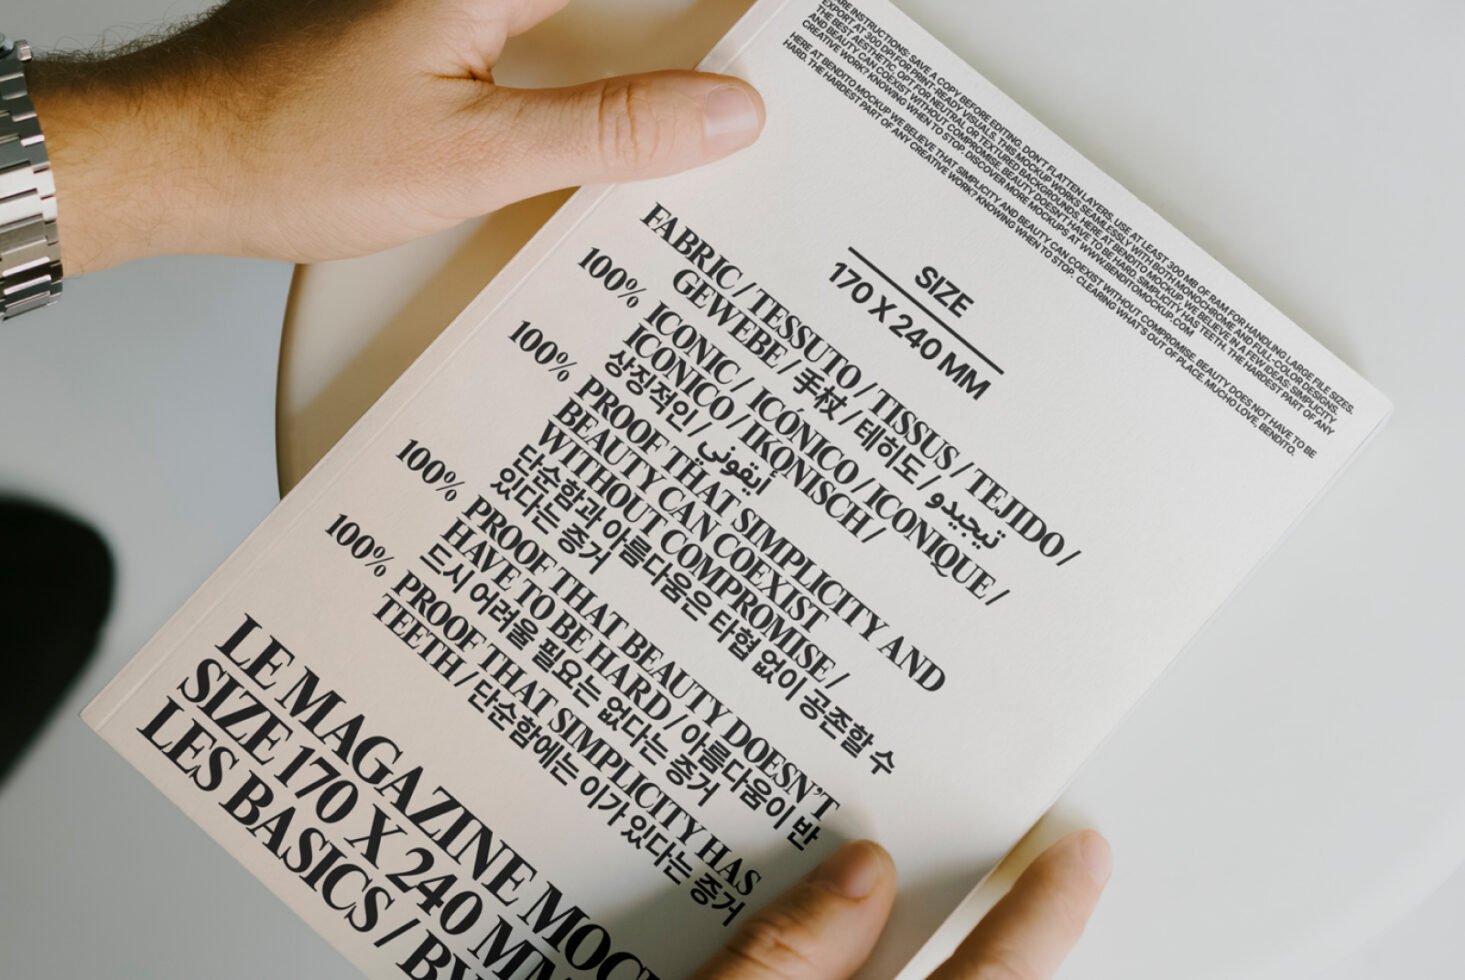 RE INSTRUCTIONS: SAVE A COPY BEFORE EDITING. DON'T FLATTEN LAYERS. USE AT LEAST 300 MB OF RAM FOR HANDLING LARGE FILE SIZES.
EXPORT AT 300 DPI FOR PRINT-READY VISUALS. THIS MOCKUP WORKS SEAMLESSLY WITH BOTH MONOCHROME AND FULL-COLOR DESIGNS.
THE BEST AESTHETIC, OPT FOR NEUTRAL OR TEXTURED BACKGROUNDS. HERE AT BENDITO MOCKUP, WE BELIEVE IN A FEW IDEAS: SIMPLICITY
AND BEAUTY CAN COEXIST WITHOUT COMPROMISE. BEAUTY DOESN'T HAVE TO BE HARD. SIMPLICITY HAS TEETH. THE HARDEST PART OF ANY
CREATIVE WORK? KNOWING WHEN TO STOP. DISCOVER MORE MOCKUPS AT WWW.BENDITOMOCKUP.COM
HERE AT BENDITO MOCKUP WE BELIEVE THAT SIMPLICITY AND BEAUTY CAN COEXIST WITHOUT COMPROMISE. BEAUTY DOES NOT HAVE TO BE
HARD. THE HARDEST PART OF ANY CREATIVE WORK? KNOWING WHEN TO STOP. CLEARING WHAT'S OUT OF PLACE. MUCHO LOVE, BENDITO.
SIZE
170 X 240 MM
FABRIC / TESSUTO / TISSUS / TEJIDO /
GEWEBE / 手杖 / 테히도 / تيجيدو
100% ICONIC / ICÓNICO / ICONIQUE /
ICONICO / IKONISCH /
상징적인 / أيقوني
100% PROOF THAT SIMPLICITY AND
BEAUTY CAN COEXIST
WITHOUT COMPROMISE /
단순함과 아름다움은 타협 없이 공존할 수
있다는 증거
100% PROOF THAT BEAUTY DOESN'T
HAVE TO BE HARD / 아름다움이 반
드시 어려울 필요는 없다는 증거
100% PROOF THAT SIMPLICITY HAS
TEETH / 단순함에는 이가 있다는 증거
LE MAGAZINE MOC
SIZE 170 X 240 MM
LES BASICS / BY